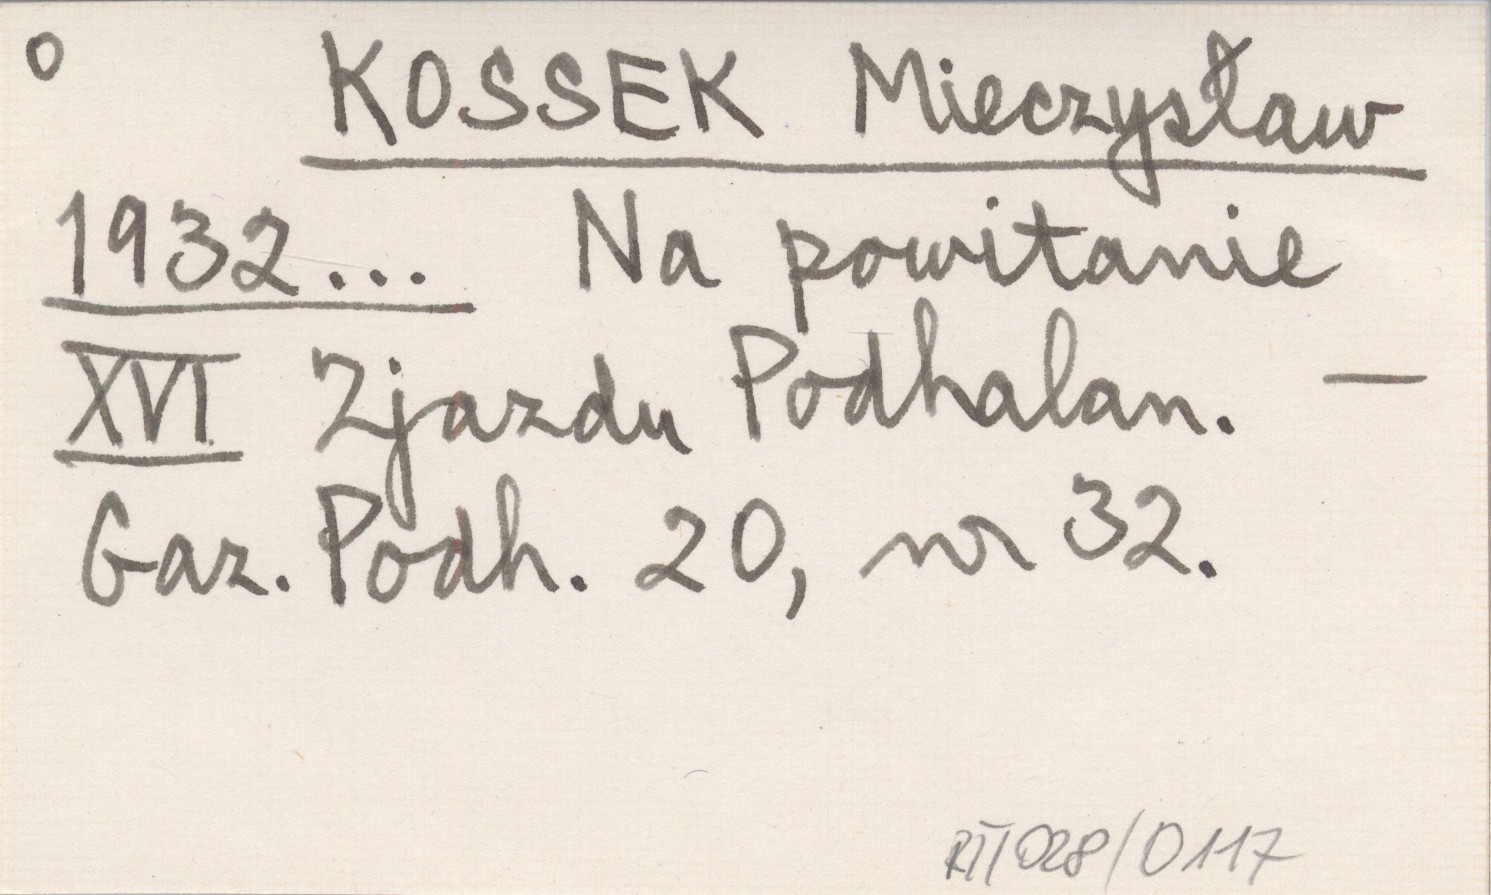 o KOSSEK Mieczysław
1932... Na powitanie
XVI Zjazdu Podhalan. —
Gaz. Podh. 20, nr 32.
/028/0117